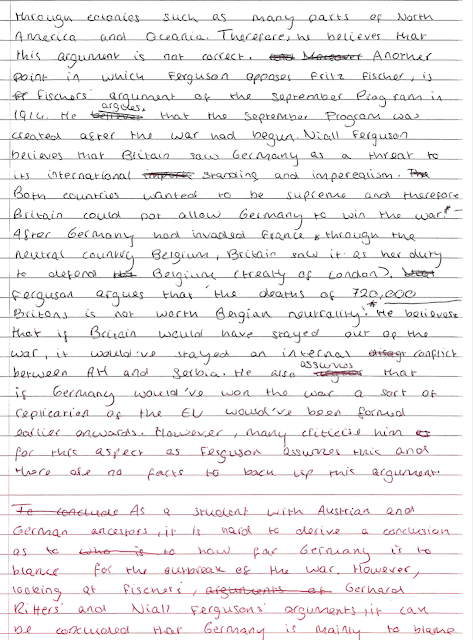 through colonies such as many parts of North
America and Oceania. Therefore, he believes that
this argument is not correct. Moreover Another
point in which Ferguson opposes Fritz Fischer, is
Fischers' argument of the September Program in
1914. He argues that the September Program was
created after the war had begun. Niall Ferguson
believes that Britain saw Germany as a threat to
its international standing and imperealism. The
Both countries wanted to be supreme and therefore
Britain could not allow Germany to win the war*-
After Germany had invaded France through the
neutral country Belgium, Britain saw it as her duty
to defend Belgium (treaty of London).
Ferguson argues that the deaths of 720,000
Britons is not worth Belgian neutrality.* He believes
that if Britain would have stayed out of the
war, it would've stayed an internal conflict
between AH and Serbia. He also assumes that
if Germany would've won the war a sort of
replication of the EU would've been formed
earlier onwards. However, many criticise him
for this aspect as Ferguson assumes this and
there are no facts to back up this argument.
To conclude As a student with Austrian and
German ancestors, it is hard to derive a conclusion
as to who is to how far Germany is to
blame for the outbreak of the war. However,
looking at Fischers', arguments of Gerhard
Ritters' and Niall Fergusons' arguments, it can
be concluded that Germany is mainly to blame